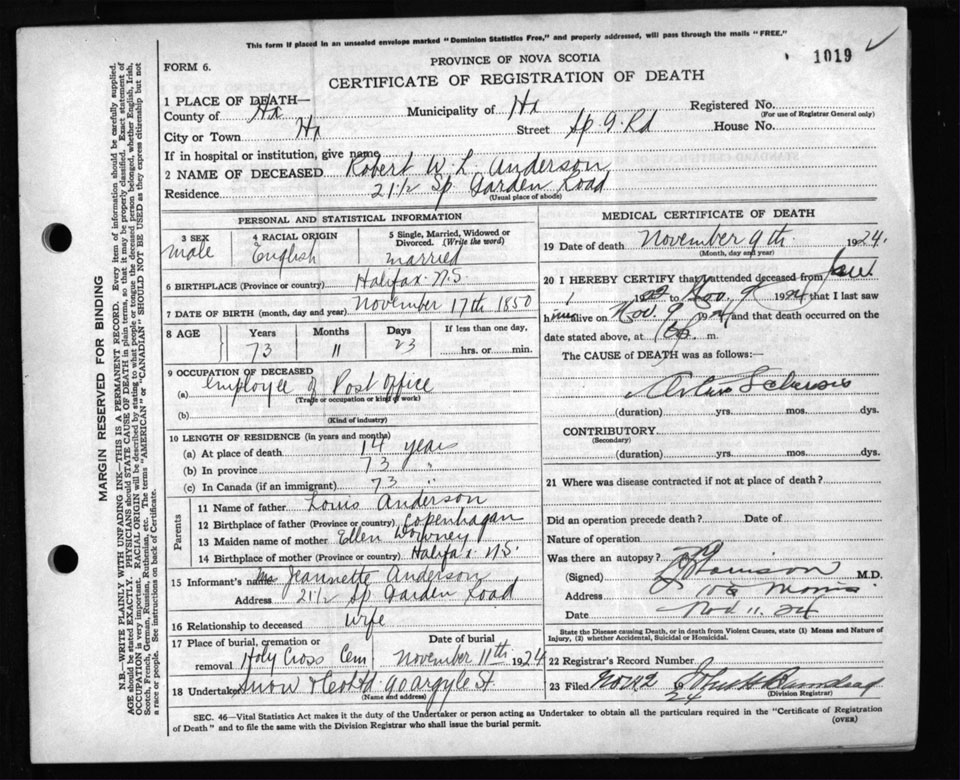 This form if placed in an unsealed envelope marked "Dominion Statistics Free," and properly addressed, will pass through the mails "FREE."
1019 ✓
PROVINCE OF NOVA SCOTIA
FORM 6.
CERTIFICATE OF REGISTRATION OF DEATH
1 PLACE OF DEATH—
County of Hx Municipality of Hx Registered No.
(For use of Registrar General only)
City or Town Hx Street Sp. G. Rd House No.
If in hospital or institution, give name
2 NAME OF DECEASED Robert W. L. Anderson
Residence 21½ Sp. Garden Road
(Usual place of abode)
PERSONAL AND STATISTICAL INFORMATION
3 SEX male
4 RACIAL ORIGIN English
5 Single, Married, Widowed or Divorced. (Write the word) married
6 BIRTHPLACE (Province or country) Halifax N.S.
7 DATE OF BIRTH (month, day and year) November 17th 1850
8 AGE Years Months Days If less than one day,
73 11 23 hrs. or min.
9 OCCUPATION OF DECEASED
(a) employee of Post Office
(Trade or occupation or kind of work)
(b)
(Kind of industry)
10 LENGTH OF RESIDENCE (in years and months)
(a) At place of death 14 years
(b) In province 73 "
(c) In Canada (if an immigrant) 73 "
Parents
11 Name of father Louis Anderson
12 Birthplace of father (Province or country) Copenhagan
13 Maiden name of mother Ellen Downey
14 Birthplace of mother (Province or country) Halifax N.S.
15 Informant's name Mrs Jeannette Anderson
Address 21½ Sp Garden Road
16 Relationship to deceased wife
17 Place of burial, cremation or removal Holy Cross Cem Date of burial November 11th 1924
18 Undertaker Snow & Co Ltd. 90 Argyle St.
(Name and address)
MEDICAL CERTIFICATE OF DEATH
19 Date of death November 9th 1924.
(Month, day and year)
20 I HEREBY CERTIFY that I attended deceased from
1 19 to Nov. 9 1924 that I last saw
him alive on Nov. 9 1924 and that death occurred on
date stated above, at m.
The CAUSE of DEATH was as follows:—
Arterio Sclerosis
(duration) yrs. mos. dys.
CONTRIBUTORY
(Secondary)
(duration) yrs. mos. dys.
21 Where was disease contracted if not at place of death?
Did an operation precede death? Date of
Nature of operation
Was there an autopsy?
(Signed) M.D.
Address Morris
Date Nov 11. 24
State the Disease causing Death, or in death from Violent Causes, state (1) Means and Nature of Injury, (2) whether Accidental, Suicidal or Homicidal.
22 Registrar's Record Number
23 Filed Nov 12 24
(Division Registrar)
SEC. 46—Vital Statistics Act makes it the duty of the Undertaker or person acting as Undertaker to obtain all the particulars required in the "Certificate of Registration
of Death" and to file the same with the Division Registrar who shall issue the burial permit.
(OVER)
MARGIN RESERVED FOR BINDING
N.B.—WRITE PLAINLY WITH UNFADING INK—THIS IS A PERMANENT RECORD. Every item of information should be carefully supplied.
AGE should be stated EXACTLY. PHYSICIANS should STATE CAUSE OF DEATH in plain terms, so that it may be properly classified. Exact statement of
OCCUPATION is very important. RACIAL ORIGIN will be described by stating to what people or tongue the deceased person belonged, whether English, Irish,
Scotch, French, German, Russian, Ruthenian, etc. The terms "AMERICAN" or "CANADIAN" SHOULD NOT BE USED as they express citizenship but not
a race or people. See instructions on back of Certificate.